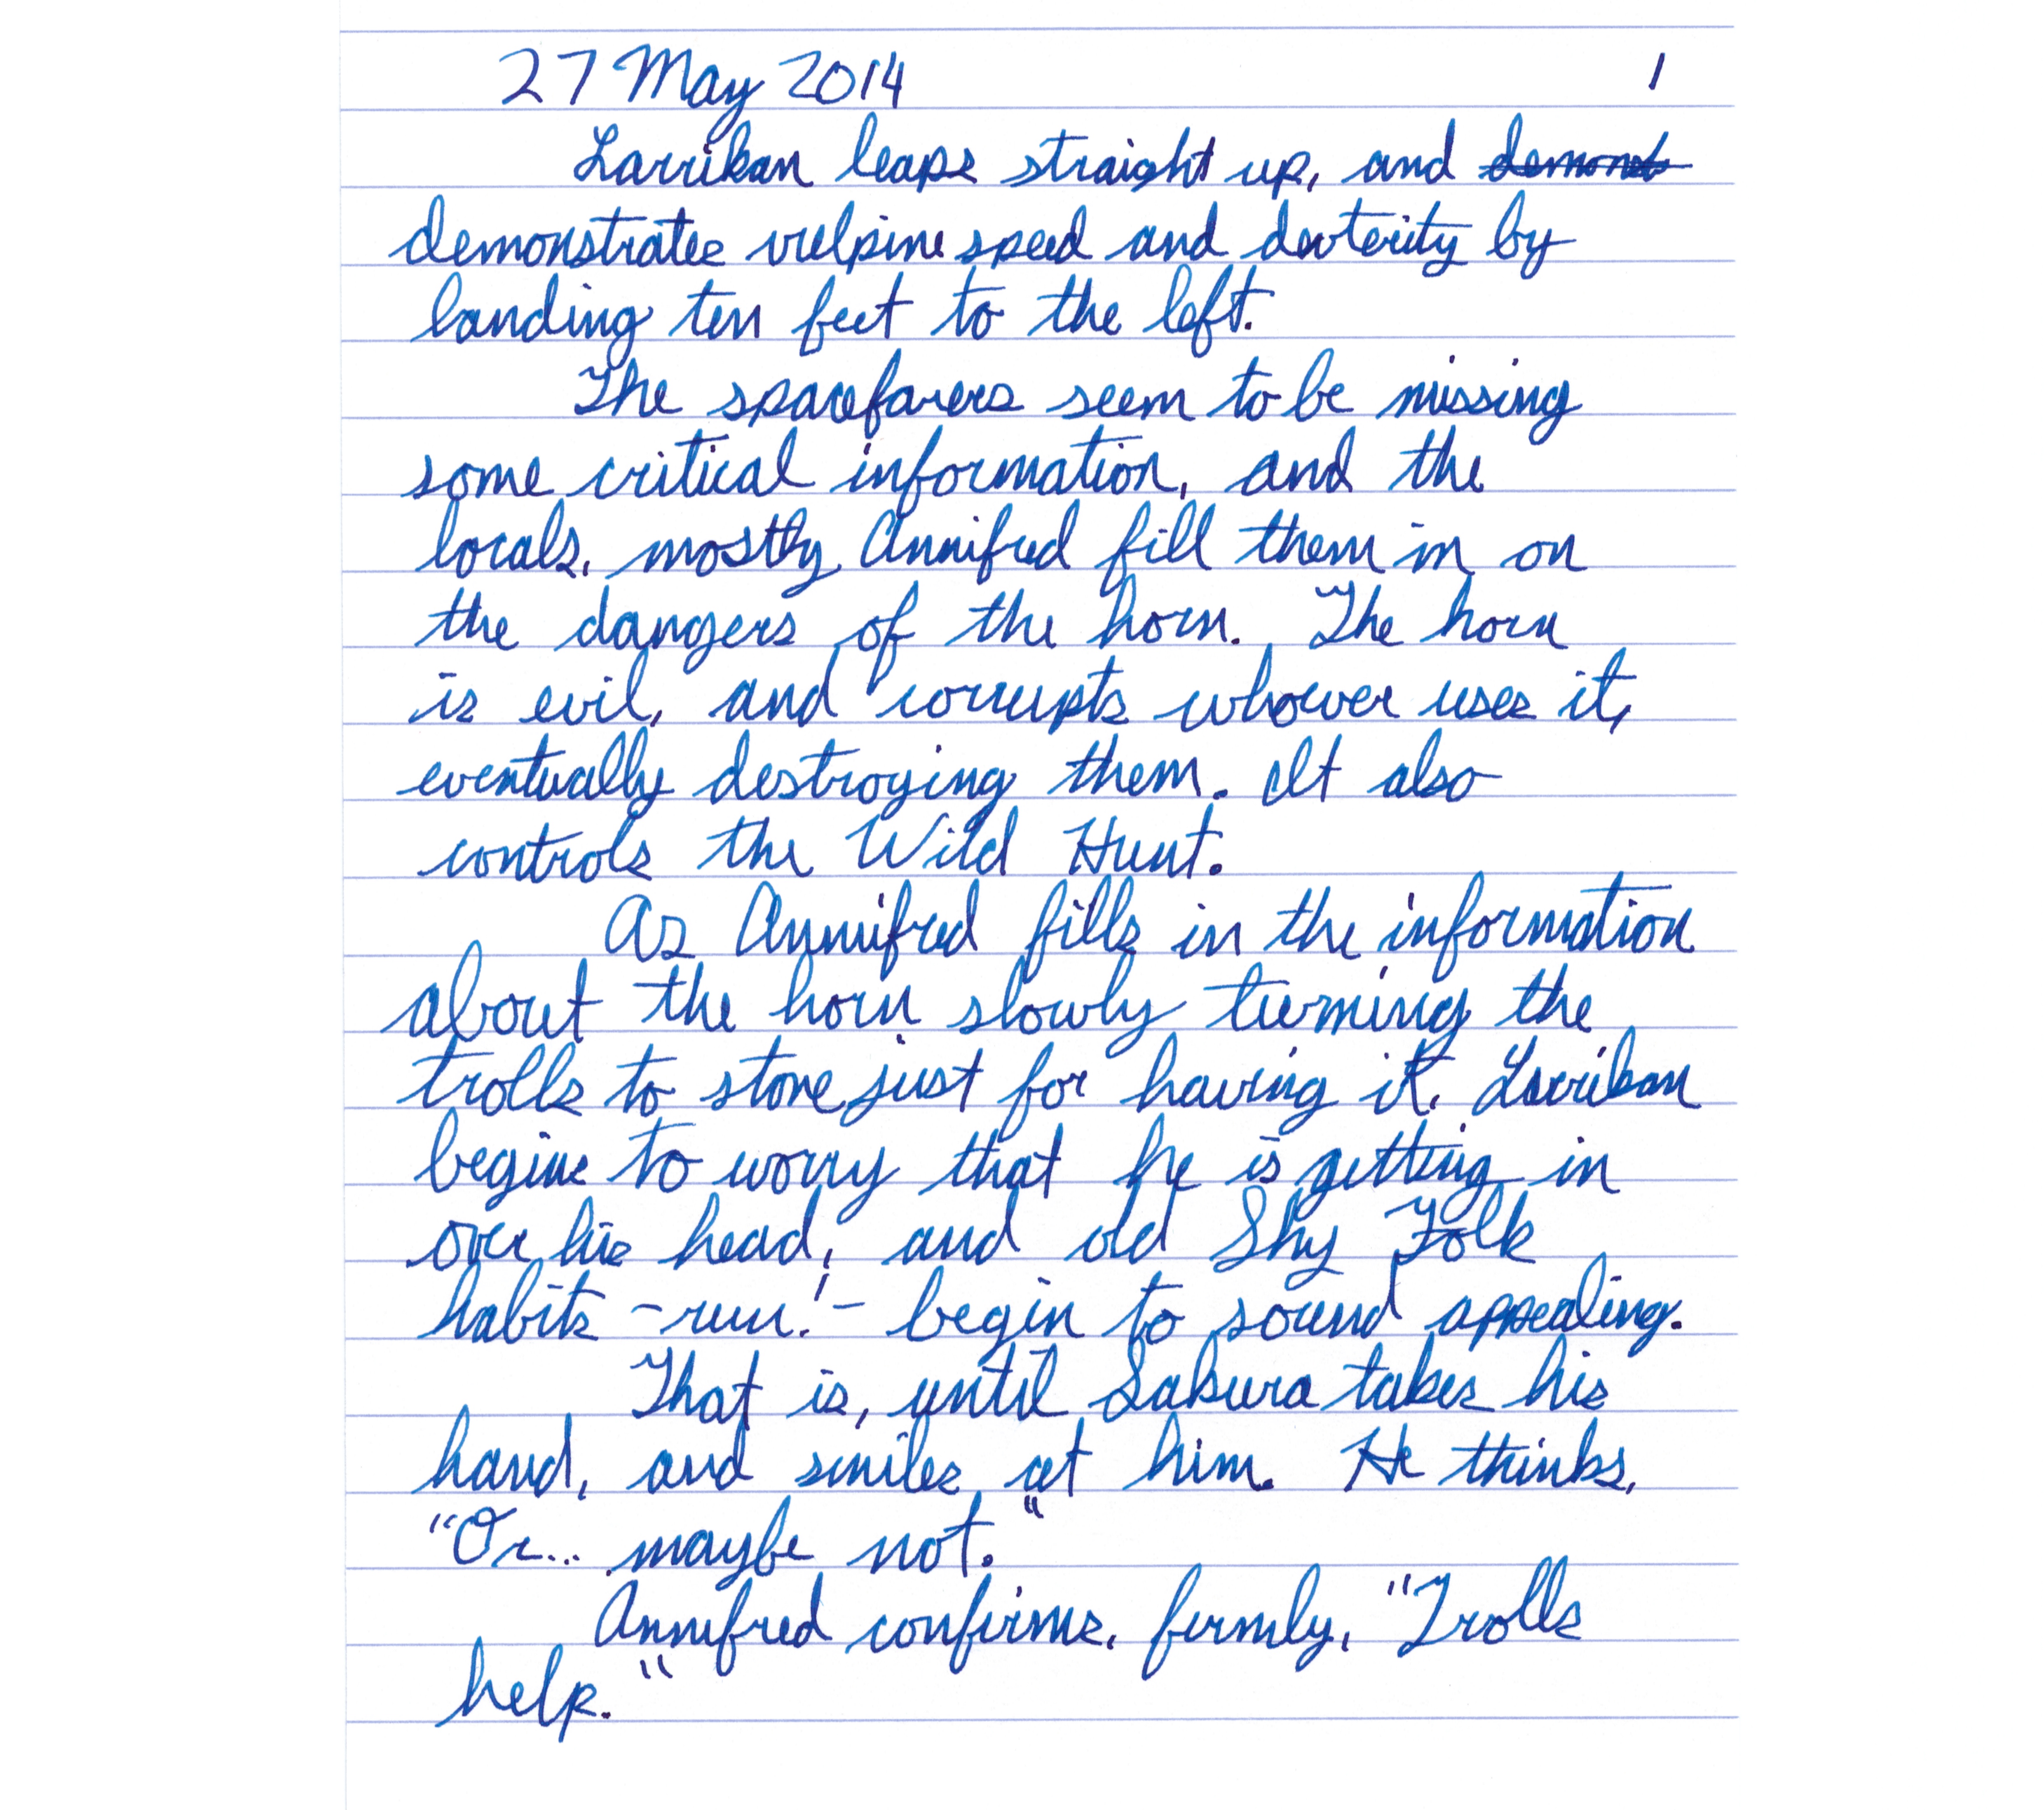 27 May 2014 1
Larrikan leaps straight up, and demonst
demonstrates vulpine speed and dexterity by
landing ten feet to the left.
The spacefarers seem to be missing
some critical information, and the
locals, mostly Annifred fill them in on
the dangers of the horn. The horn
is evil, and corrupts whoever uses it,
eventually destroying them. It also
controls the Wild Hunt.
As Annifred fills in the information
about the horn slowly turning the
trolls to stone just for having it, Larrikan
begins to worry that he is getting in
over his head, and old Shy Folk
habits -run!- begin to sound appealing.
That is, until Sakura takes his
hand, and smiles at him. He thinks,
"Or... maybe not."
Annifred confirms, firmly, "Trolls
help."